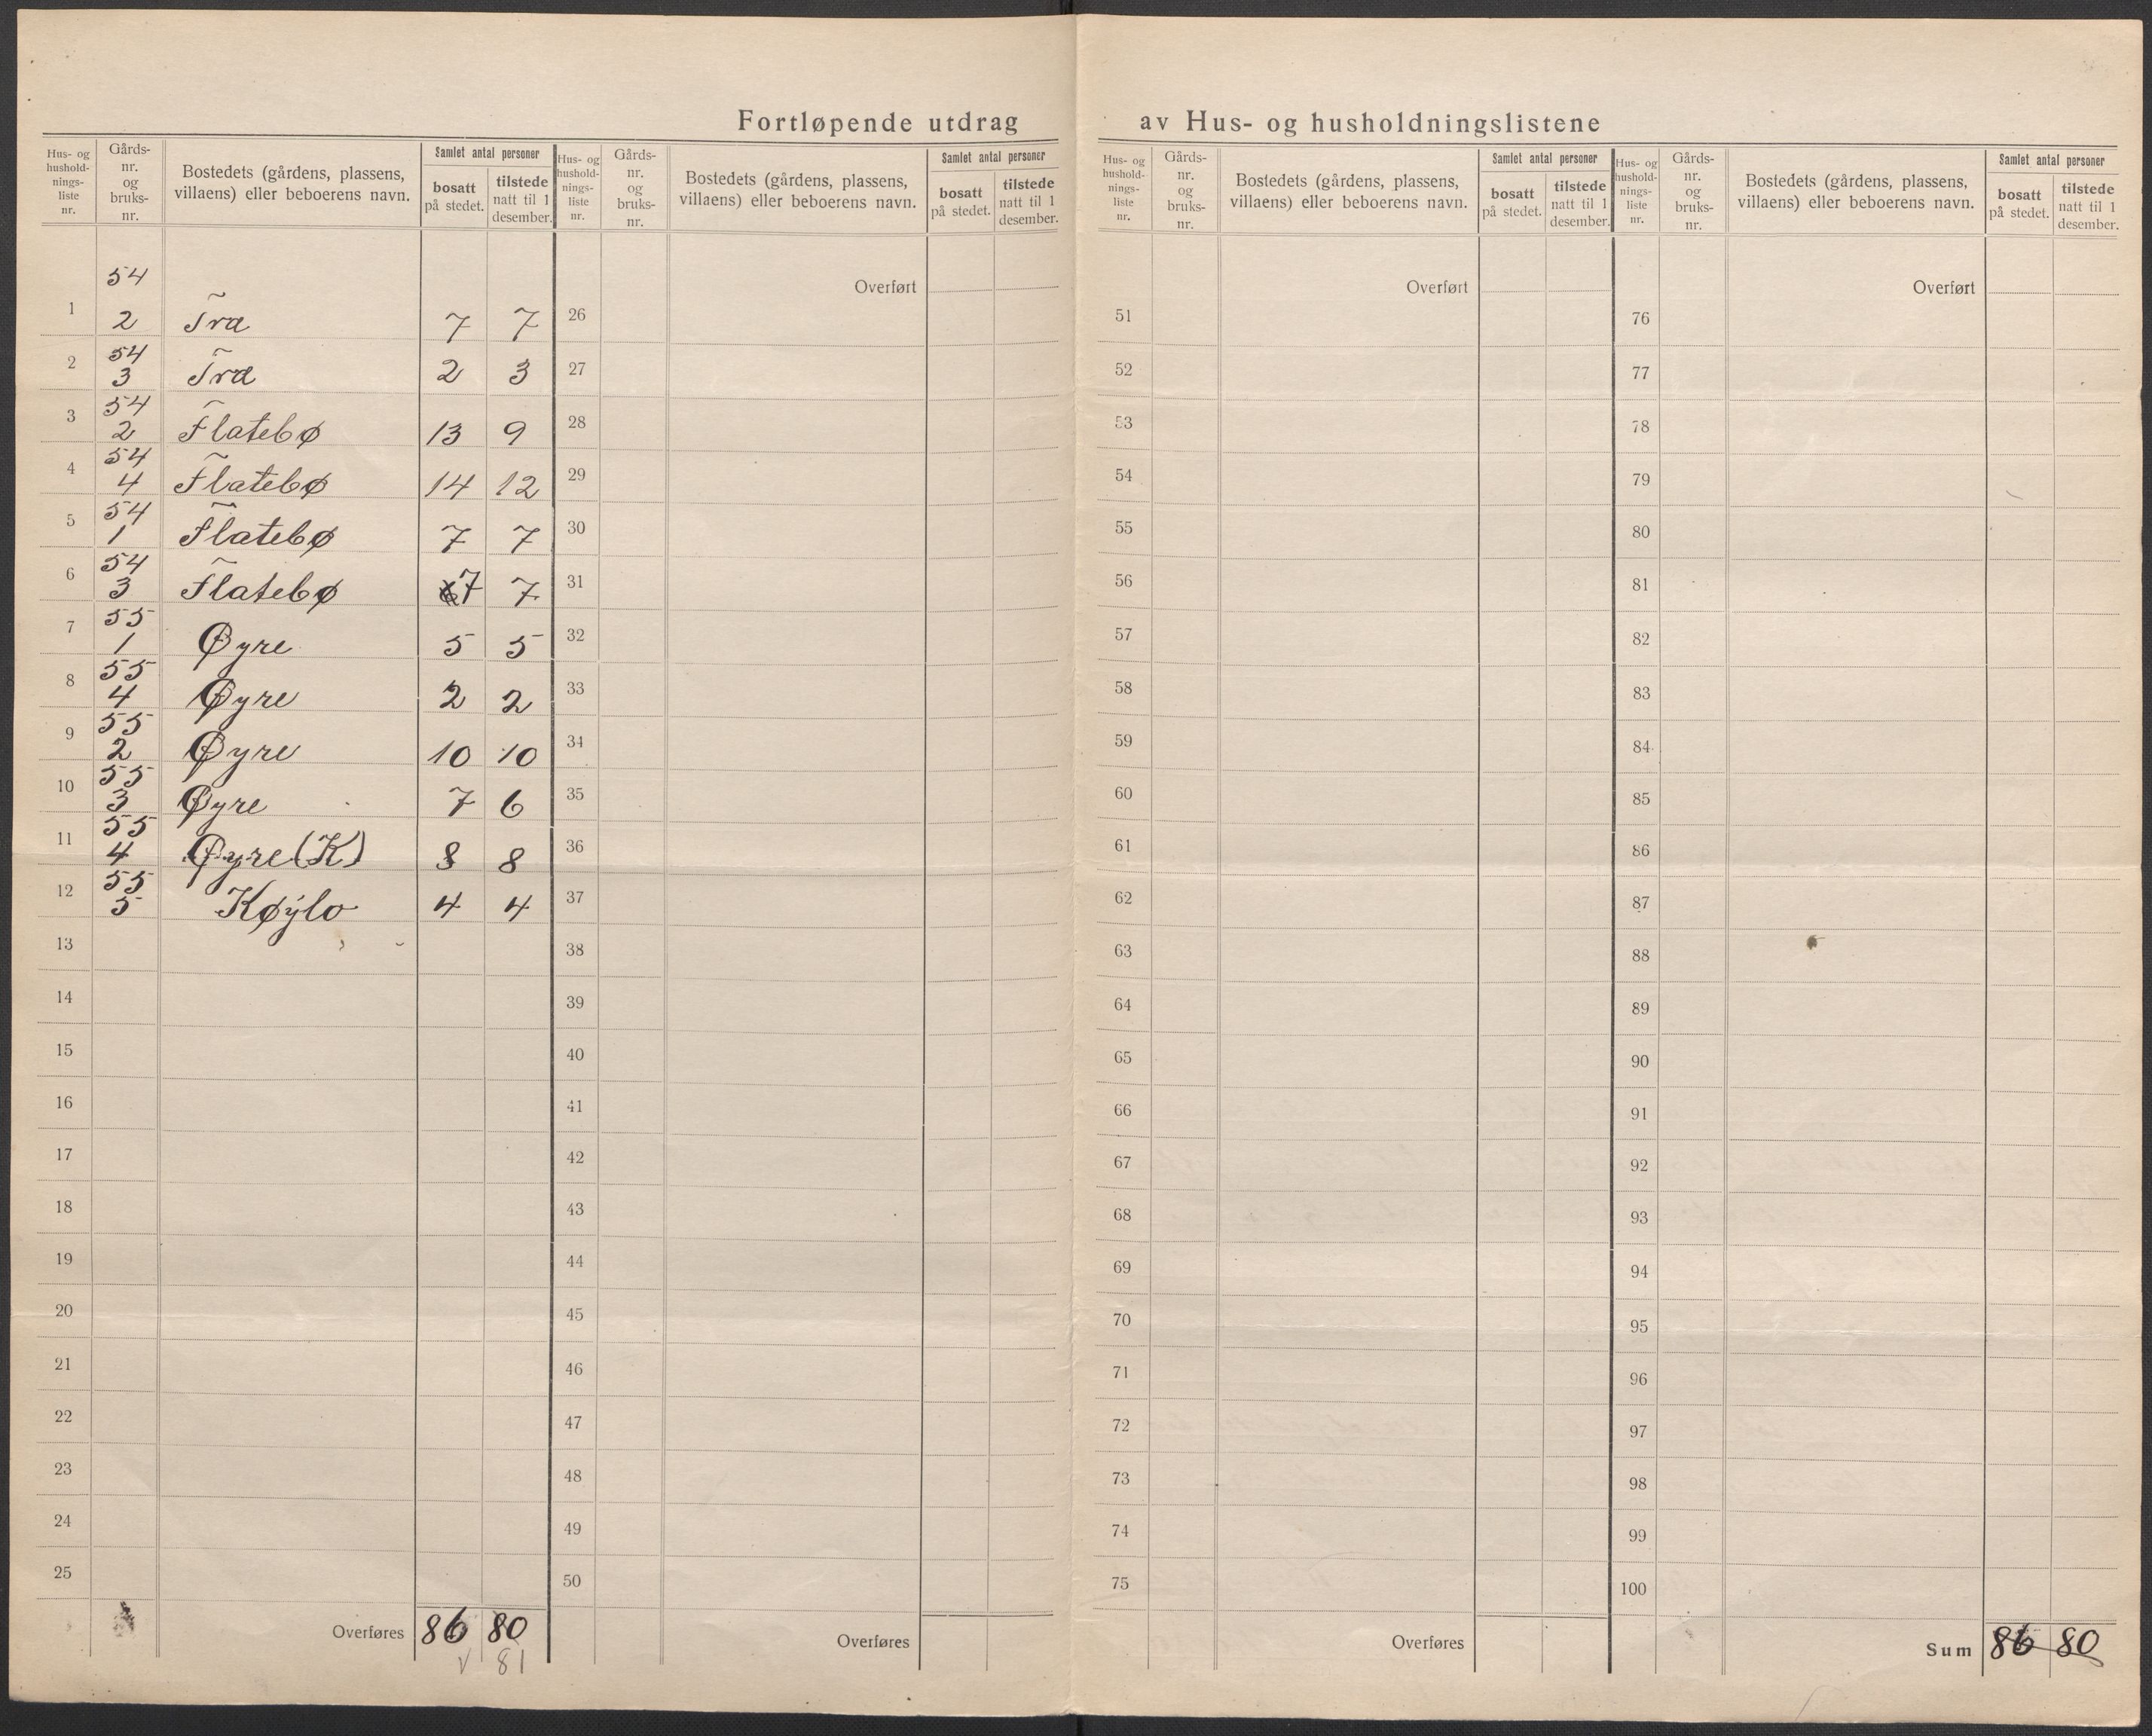 Fortløpende utdrag av Hus- og husholdningslistene
Hus- og hushold-nings-liste nr. | Gårds-nr. og bruks-nr. | Bostedets (gårdens, plassens, villaens) eller beboerens navn. | Samlet antal personer | bosatt på stedet. | tilstede natt til 1 desember.
Hus- og hushold-nings-liste nr. | Gårds-nr. og bruks-nr. | Bostedets (gårdens, plassens, villaens) eller beboerens navn. | Samlet antal personer | bosatt på stedet. | tilstede natt til 1 desember.
Hus- og hushold-nings-liste nr. | Gårds-nr. og bruks-nr. | Bostedets (gårdens, plassens, villaens) eller beboerens navn. | Samlet antal personer | bosatt på stedet. | tilstede natt til 1 desember.
Hus- og hushold-nings-liste nr. | Gårds-nr. og bruks-nr. | Bostedets (gårdens, plassens, villaens) eller beboerens navn. | Samlet antal personer | bosatt på stedet. | tilstede natt til 1 desember.
1 54 2 Tra 7 7
2 54 3 Tra 2 3
3 54 2 Flatebø 13 9
4 54 4 Flatebø 14 12
5 54 1 Flatebø 7 7
6 54 3 Flatebø 7 7
7 55 1 Øyre 5 5
8 55 4 Øyre 2 2
9 55 2 Øyre 10 10
10 55 3 Øyre 7 6
11 55 4 Øyre (K) 8 8
12 55 5 Køylo 4 4
13
14
15
16
17
18
19
20
21
22
23
24
25
Overføres 86 80
81
Overført
26
27
28
29
30
31
32
33
34
35
36
37
38
39
40
41
42
43
44
45
46
47
48
49
50
Overføres
Overført
51
52
53
54
55
56
57
58
59
60
61
62
63
64
65
66
67
68
69
70
71
72
73
74
75
Overføres
Overført
76
77
78
79
80
81
82
83
84
85
86
87
88
89
90
91
92
93
94
95
96
97
98
99
100
Sum 86 80